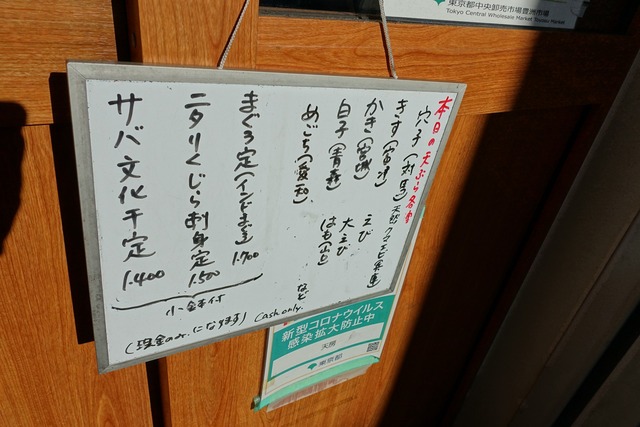 東京都中央卸売市場豊洲市場
Tokyo Central Wholesale Market Toyosu Market
本日の天ぷら
穴子(対馬)
きす(富津)
かき(宮城)
えび
白子(青森)
大えび
めごち(愛知)
はも(山口)
など
まぐろ定(インドまぐろ)
1.700
ニタリくじら刺身定
1.500
サバ文化干定
1.400
小金本付
(現金のみになります) Cash only.
新型コロナウイルス
感染拡大防止中
天房
東京都